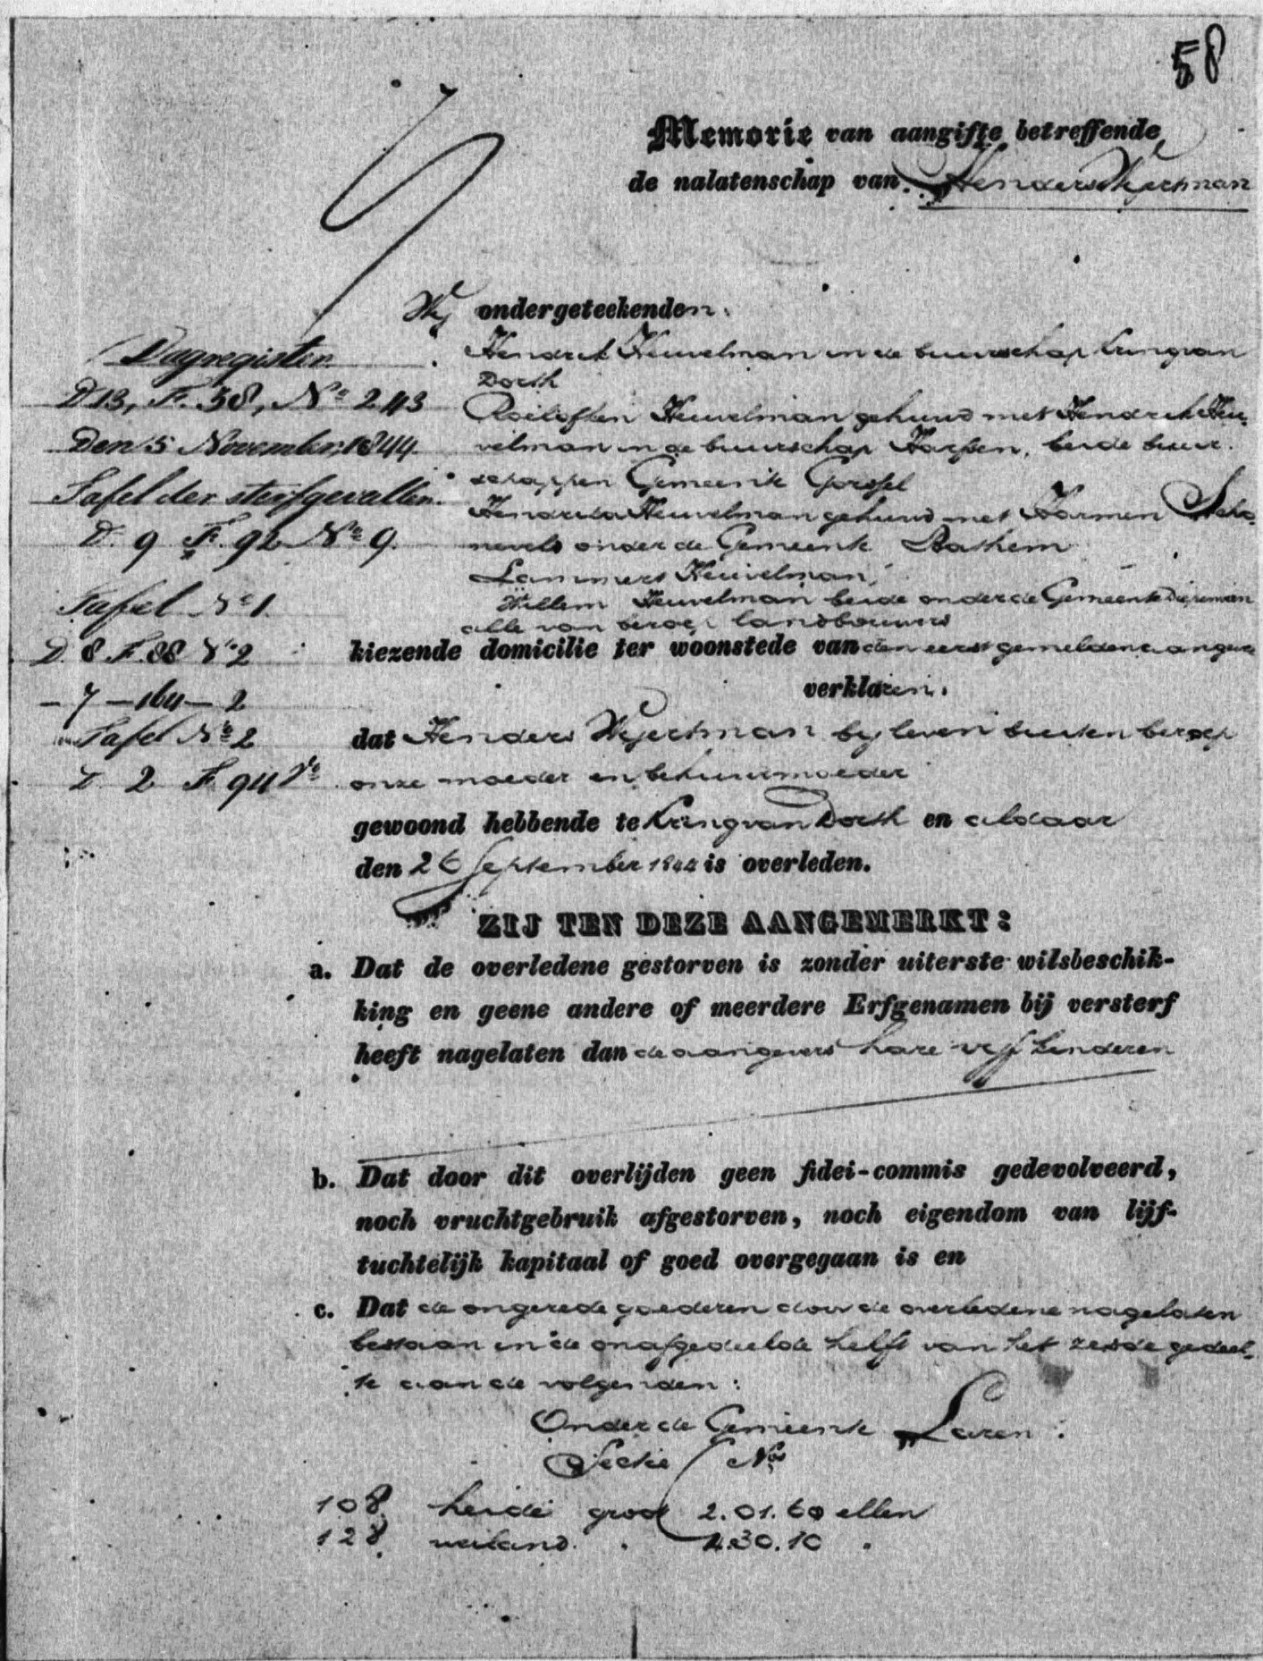 58
Memorie van aangifte betreffende
de nalatenschap van Henders Wijertman
Wij ondergeteekenden.
Hendrik Heuvelman in de buurschap Kring van
Dorth
Roeloffen Heuvelman gehuwd met Hendrik Heu-
velman in de buurschap Harfsen, beide buur-
schappen Gemeente Gorssel
Hendrika Heuvelman gehuwd met Harmen
onder de Gemeente Bathem
Lammers Heuvelman,
Willem Heuvelman beide onder de Gemeente Diepenveen
alle van beroep landbouwers
kiezende domicilie ter woonstede van den eerstgemelden aangever
verklaren.
dat Henders Wijertman bij leven buiten beroep
onze moeder en behuwmoeder
gewoond hebbende te Kring van Dorth en aldaar
den 26 September 1844 is overleden.
Dagregister
D 13, F. 58, No 243
Den 5 November 1844.
Tafel der sterfgevallen.
D. 9 F. 92 No 9.
Tafel No 1.
D. 8 F. 88 No 2
- 7 - 164 - 2
Tafel No 2
D. 2 F. 94 Vo
ZIJ TEN DEZE AANGEMERKT:
a. Dat de overledene gestorven is zonder uiterste wilsbeschik-
king en geene andere of meerdere Erfgenamen bij versterf
heeft nagelaten dan de aangevers hare vijf kinderen
b. Dat door dit overlijden geen fidei-commis gedevolveerd,
noch vruchtgebruik afgestorven, noch eigendom van lijf-
tuchtelijk kapitaal of goed overgegaan is en
c. Dat de ongerede goederen door de overledene nagelaten
bestaan in de onafgedeelde helft van het zesde gedeel-
te aan de volgenden:
Onder de Gemeente Laren:
Sectie No
108. heide groot 2.01.60 ellen
128. weiland. . 4.30.10 .